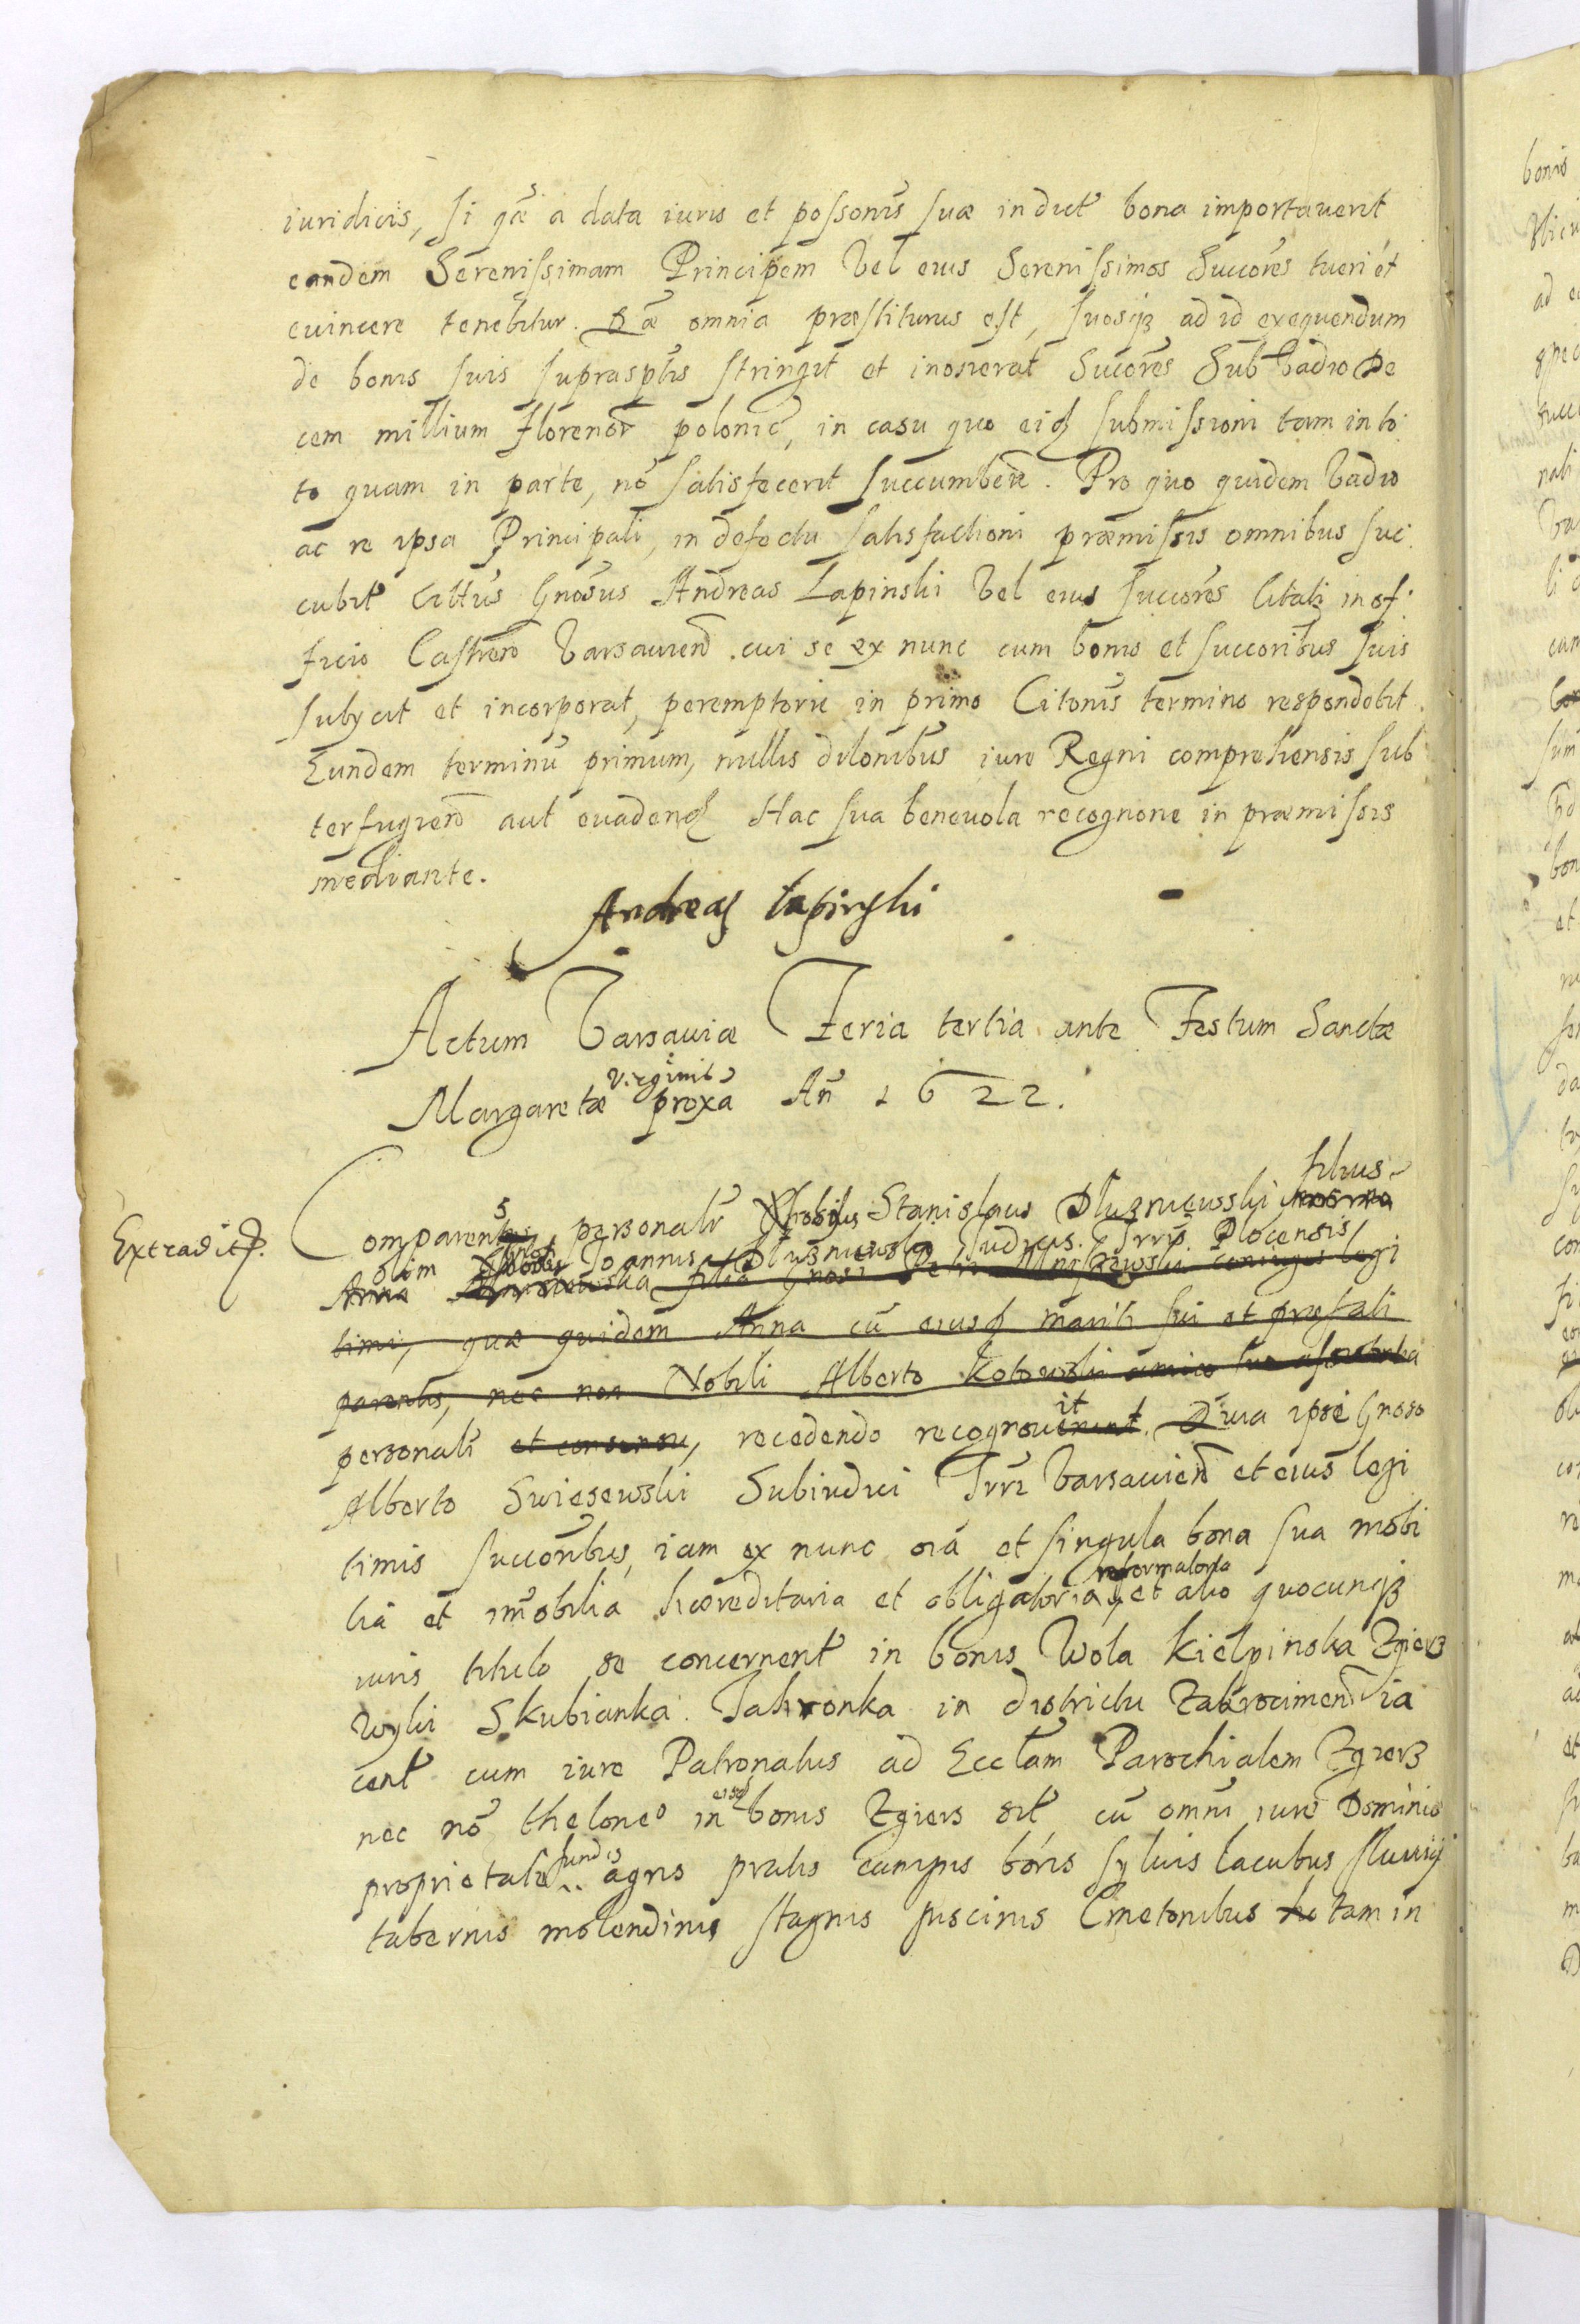 iuridicis, si qae a data iuris et possonis suae in dict bona importaverit
eandem Serenissimam Principem vel eius Serenissimos Succores tueri et
evincere tenebitur. Quae omnia praestiturus est, suosqz ad id exequendum
de bonis suis suprasptis stringit et inoscerat Succores Sub Vadio De
cem millium Florenor polonic, in casu quo eid submissioni tam in to
to quam in parte, no satisfecerit succumbere. Pro quo quidem Vadio
ac re ipsa Principali, in defectu satisfactioni praemissis omnibus suc
cubit Cittus Gnosus Andreas Lapinski vel eius succores Citati in of
ficio Castren Varsavien cui se ex nunc cum bonis et succoribus suis
subycit et incorporat, peremptorie in primo Citonis termino respondebit.
Eundem terminu primum, nullis dilonibus iure Regni comprehensis sub
terfugien aut evadend Hac sua benevola recognone in praemissis
mediante.
Andreas Lapinski
Actum Varsaviae Feria tertia ante Festum Sanctae
Virginis
Margaretae proxa An 1622.
filius
Extradit.
Comparens personalr Stanislaus Dluzniewski
olim Joannis Dluzniewski Judicis Trrs Plocensis
Anna filia Gnosi Petri coniugis legi
timi, quae quidem Anna cu eiusd mariti sui et praefati
parentis, nec non Nobili Alberto Kotowski amico suo
it
personali et consensu, recedendo recognoverunt. Quia ipse Gnoso
Alberto Swiesewski Subiudici Trrs Varsavien et eius legi
timis succoribus, iam ex nunc oia et singula bona sua mobi
reformatoria
lia et imobilia haereditaria et obligatoria, et alio quocunqz
iuris titulo se concernent in bonis Wola Kielpinska Zgierz
Wylii Skubianka Jahronka in districtu Zakrocimen ia
cent cum iure Patronatus ad Ecclam Parochialem Zgierz
eisd
nec no theloneo in bonis Zgiers sit cu omni iure Dominio
fundis
proprietate agris pratis campis boris sylvis lacubus fluviis
tabernis molendinis stagnis piscinis Cmetonibus tam in